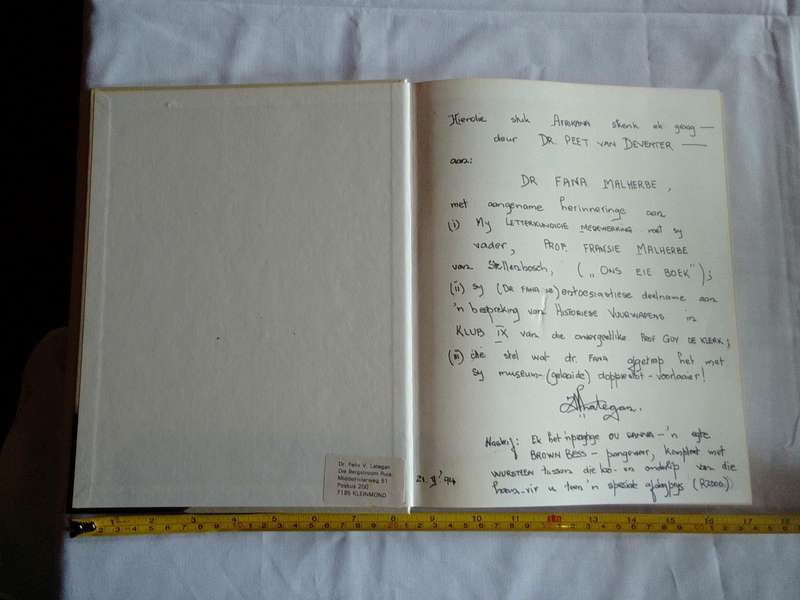 Hierdie stuk AFRIKANA skenk ek graag —
deur DR. PEET VAN DEVENTER —
aan:
DR FANA MALHERBE,
met aangename herinneringe aan
(i) My LETTERKUNDIGE MEDEWERKING met sy
vader, PROF. FRANSIE MALHERBE
van Stellenbosch, („ONS EIE BOEK");
(ii) sy (DR FANA se) entoesiastiese deelname aan
'n bespreking van HISTORIESE VUURWAPENS in
KLUB IX van die onvergeetlike PROF GUY DE KLERK;
(iii) die stel wat dr. FANA afgetrap het met
sy museum-(gelaaide) dopperslot-voorlaaier!
Naskrif: Ek het 'n OU SANNA — 'n egte
BROWN BESS - pangeweer, kompleet met
VUURSTEEN tussen die bo- en onderlip van die
haan — vir u teen 'n spesiale (R2000.)
21. '94
Dr. Felix V. Lategan
Die Bergstroom Purk
Posbus 200
7195 KLEINMOND
1 2 3 4 5 6 7 8 9 10 11 12 13 14 15 16 17 18